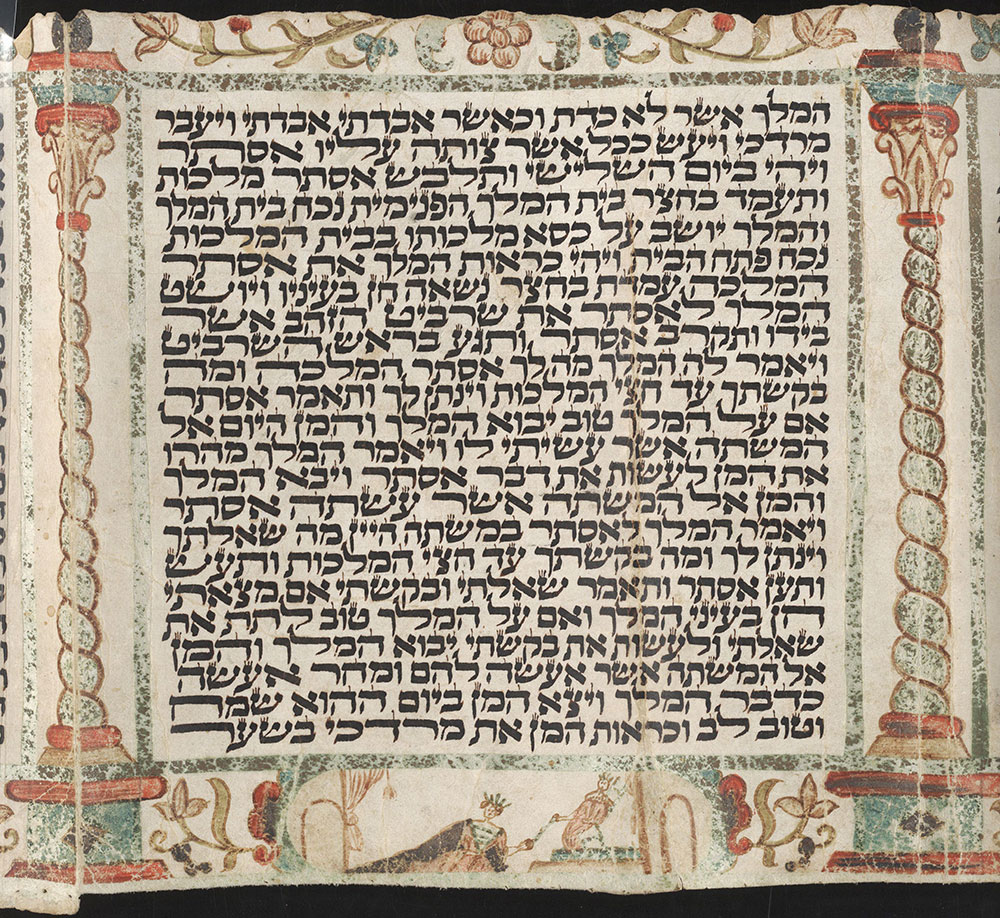 המלך אשר לא כדת וכאשר אבדתי אבדתי ויעבר
מרדכי ויעש ככל אשר צותה עליו אסתר
ויהי ביום השלישי ותלבש אסתר מלכות
ותעמד בחצר בית המלך הפנימית נכח בית המלך
והמלך יושב על כסא מלכותו בבית המלכות
נכח פתח הבית ויהי כראות המלך את אסתר
המלכה עמדת בחצר נשאה חן בעיניו ויושט
המלך לאסתר את שרביט הזהב אשר
בידו ותקרב אסתר ותגע בראש השרביט
ויאמר לה המלך מה לך אסתר המלכה ומה
בקשתך עד חצי המלכות וינתן לך ותאמר אסתר
אם על המלך טוב יבוא המלך והמן היום אל
המשתה אשר עשיתי לו ויאמר המלך מהרו
את המן לעשות את דבר אסתר ויבא המלך
והמן אל המשתה אשר עשתה אסתר
ויאמר המלך לאסתר במשתה היין מה שאלתך
וינתן לך ומה בקשתך עד חצי המלכות ותעש
ותען אסתר ותאמר שאלתי ובקשתי אם מצאתי
חן בעיני המלך ואם על המלך טוב לתת את
שאלתי ולעשות את בקשתי יבוא המלך והמן
אל המשתה אשר אעשה להם ומחר אעשה
כדבר המלך ויצא המן ביום ההוא שמח
וטוב לב וכראות המן את מרדכי בשער